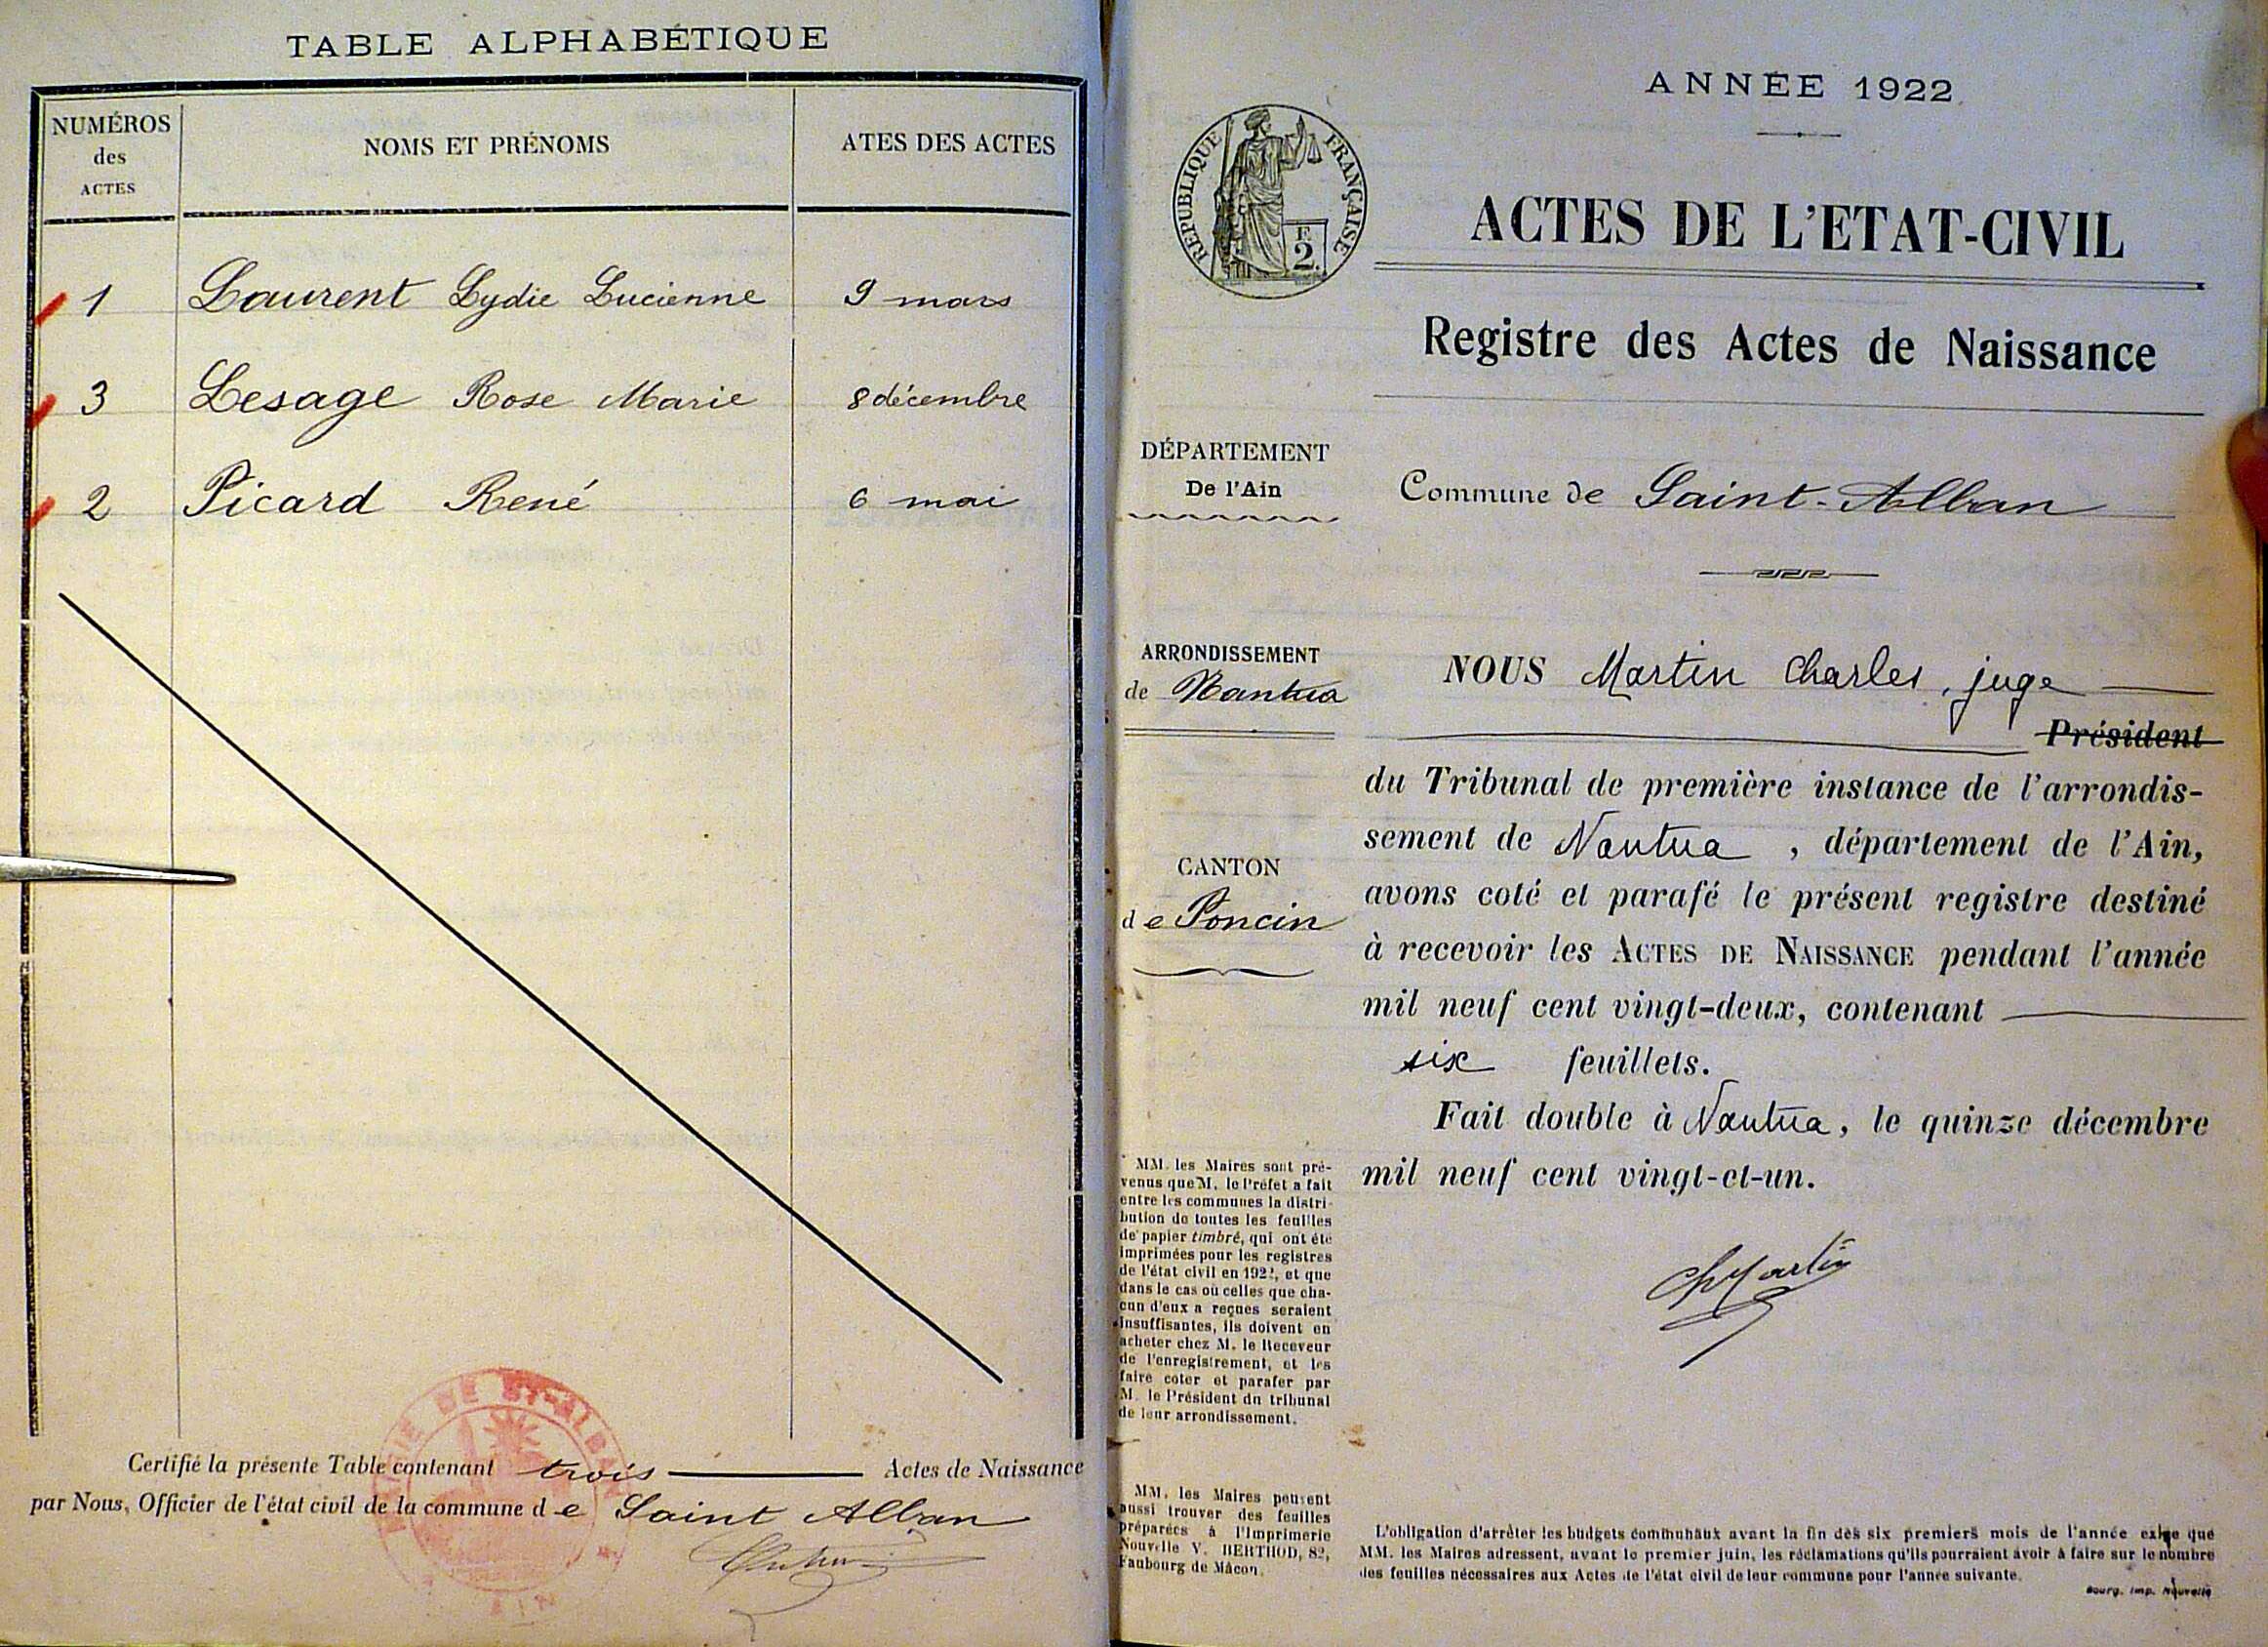 TABLE ALPHABÉTIQUE
NUMÉROS
des
ACTES
NOMS ET PRÉNOMS
ATES DES ACTES
1 Laurent Lydie Lucienne 9 mars
3 Lesage Rose Marie 8 décembre
2 Picard René 6 mai
MAIRIE DE ST-ALBAN
AIN
Certifié la présente Table contenant trois Actes de Naissance
par Nous, Officier de l'état civil de la commune de Saint Alban
ANNÉE 1922
RÉPUBLIQUE FRANÇAISE
2
ACTES DE L'ETAT-CIVIL
Registre des Actes de Naissance
DÉPARTEMENT
De l'Ain
Commune de Saint-Alban
ARRONDISSEMENT
de Nantua
CANTON
de Poncin
NOUS Martin Charles, juge
Président
du Tribunal de première instance de l'arrondis-
sement de Nantua, département de l'Ain,
avons coté et parafé le présent registre destiné
à recevoir les ACTES DE NAISSANCE pendant l'année
mil neuf cent vingt-deux, contenant
six feuillets.
Fait double à Nantua, le quinze décembre
mil neuf cent vingt-et-un.
Ch Martin
MM. les Maires sont pré-
venus que M. le Préfet a fait
entre les communes la distri-
bution de toutes les feuilles
de papier timbré, qui ont été
imprimées pour les registres
de l'état civil en 1922, et que
dans le cas où celles que cha-
cun d'eux a reçues seraient
insuffisantes, ils doivent en
acheter chez M. le Receveur
de l'enregistrement, et les
faire coter et parafer par
M. le Président du tribunal
de leur arrondissement.
MM. les Maires peuvent
aussi trouver des feuilles
préparées à l'Imprimerie
Nouvelle V. BERTHOD, 82,
Faubourg de Mâcon.
L'obligation d'arrêter les budgets communaux avant la fin des six premiers mois de l'année exige que
MM. les Maires adressent, avant le premier juin, les réclamations qu'ils pourraient avoir à faire sur le nombre
des feuilles nécessaires aux Actes de l'état civil de leur commune pour l'année suivante.
Bourg. Imp. Nouvelle